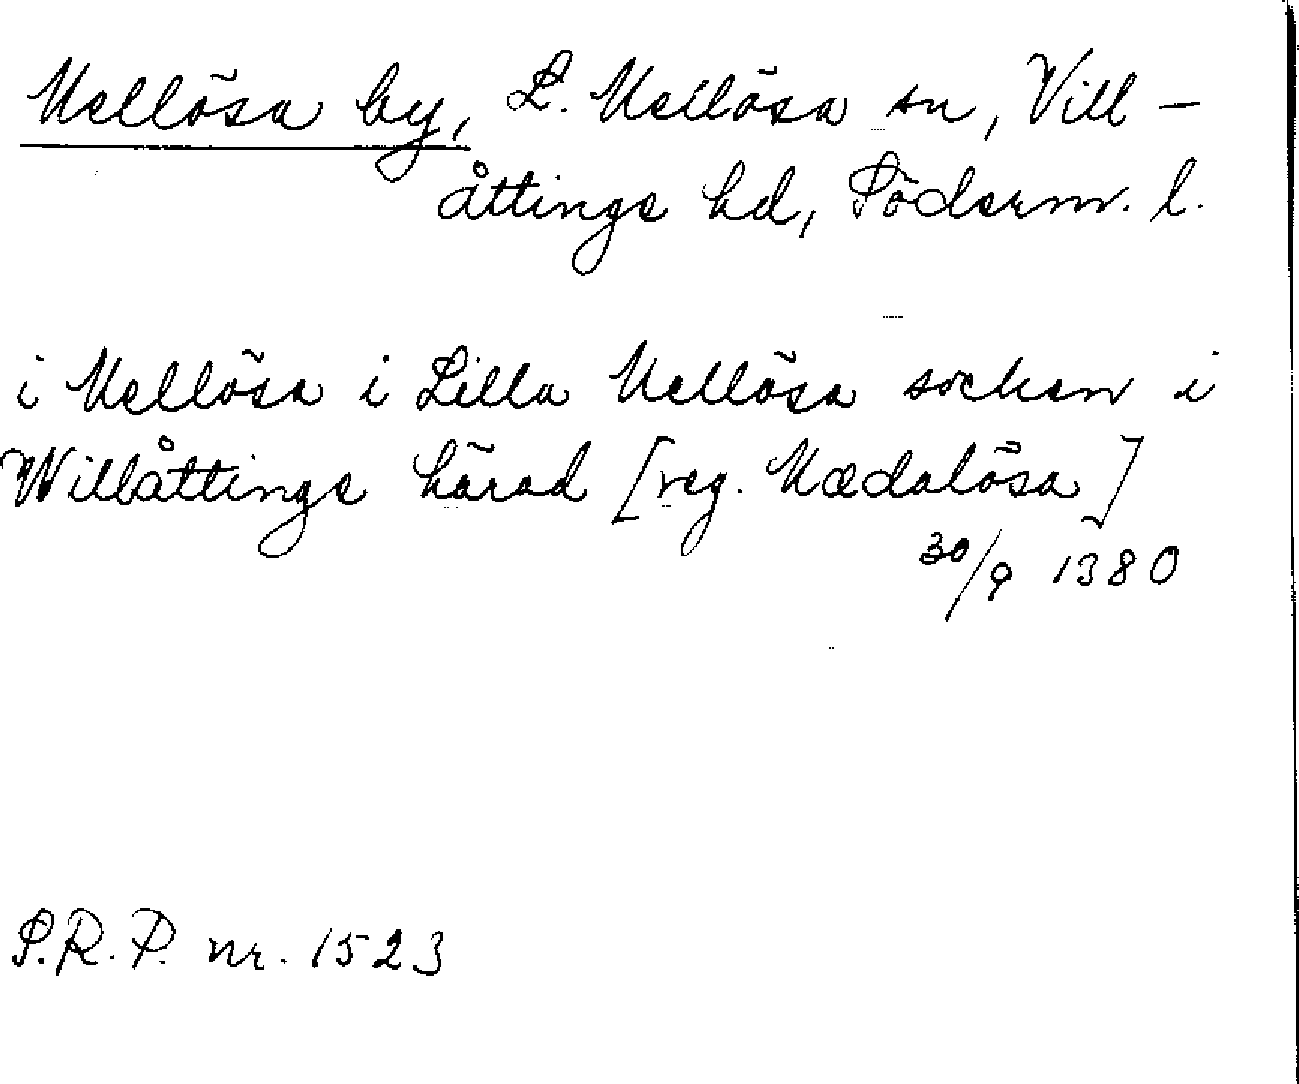 Mellösa by, L. Mellösa sn, Vill-
åttings hd, Söderm. l.
i Mellösa i Lilla Mellösa socken i
Willåttinge härad [reg. Mædalösa]
30/9 1380
S.R.P. nr. 1523